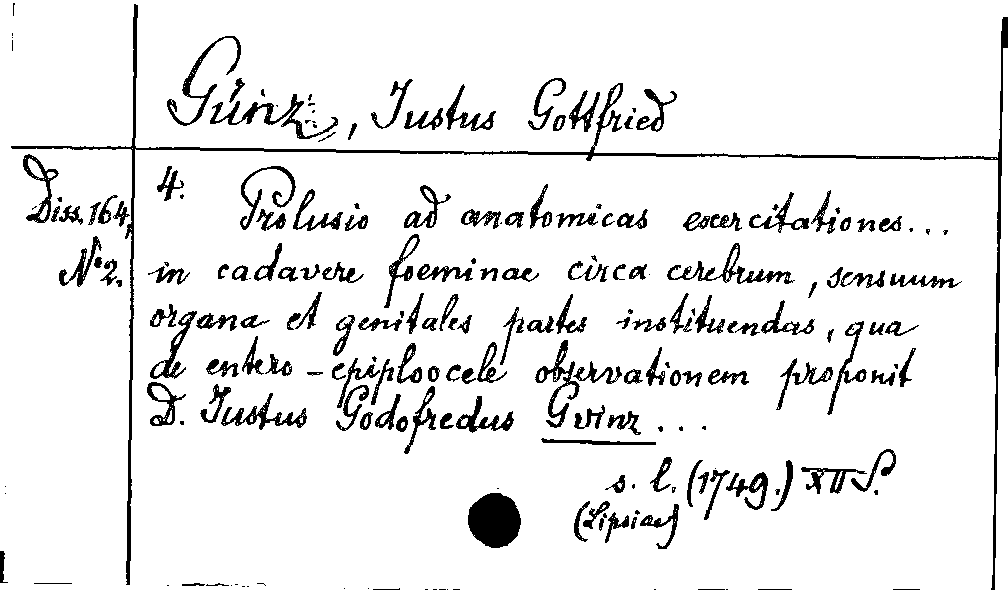 Günz, Iustus Gottfried
Diss. 164,
No 2.
4. Prolusio ad anatomicas exercitationes...
in cadavere foeminae circa cerebrum, sensuum
organa et genitales partes instituendas, qua
de entero-epiploocele observationem proponit
D. Iustus Godofredus Gvinz...
s. l. (1749.) XII S.
(Lipsiae)